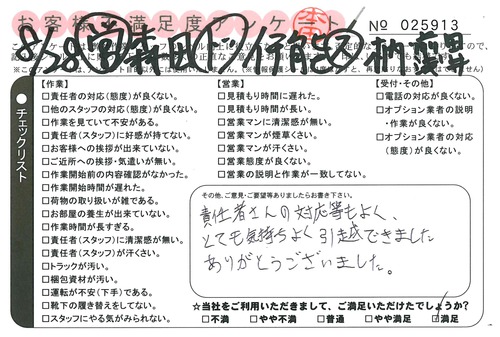 お客様満足度アンケート
No 025913
チェックリスト
【作業】
□責任者の対応(態度)が良くない。
□他のスタッフの対応(態度)が良くない。
□作業を見ていて不安がある。
□責任者(スタッフ)に好感が持てない。
□お客様への挨拶が出来ていない。
□ご近所への挨拶・気遣いが無い。
□作業開始前の内容確認がなかった。
□作業開始時間が遅れた。
□荷物の取り扱いが雑である。
□お部屋の養生が出来ていない。
□作業時間が長すぎる。
□責任者(スタッフ)に清潔感が無い。
□責任者(スタッフ)が汗くさい。
□トラックが汚い。
□梱包資材が汚い。
□運転が不安(下手)である。
□靴下の履き替えをしてない。
□スタッフにやる気がみられない。
【営業】
□見積もり時間に遅れた。
□見積もり時間が長い。
□営業マンに清潔感が無い。
□営業マンが煙草くさい。
□営業マンが汗くさい。
□営業態度が良くない。
□営業の説明と作業が一致してない。
【受付・その他】
□電話の対応が良くない。
□オプション業者の説明・作業が良くない。
□オプション業者の対応(態度)が良くない。
その他、ご意見・ご要望等ありましたらお書き下さい。
責任者さんの対応等もよく、
とても気持ちよく引越できました
ありがとうございました。
☆当社をご利用いただきまして、ご満足いただけたでしょうか?
□不満 □やや不満 □普通 □やや満足 □満足